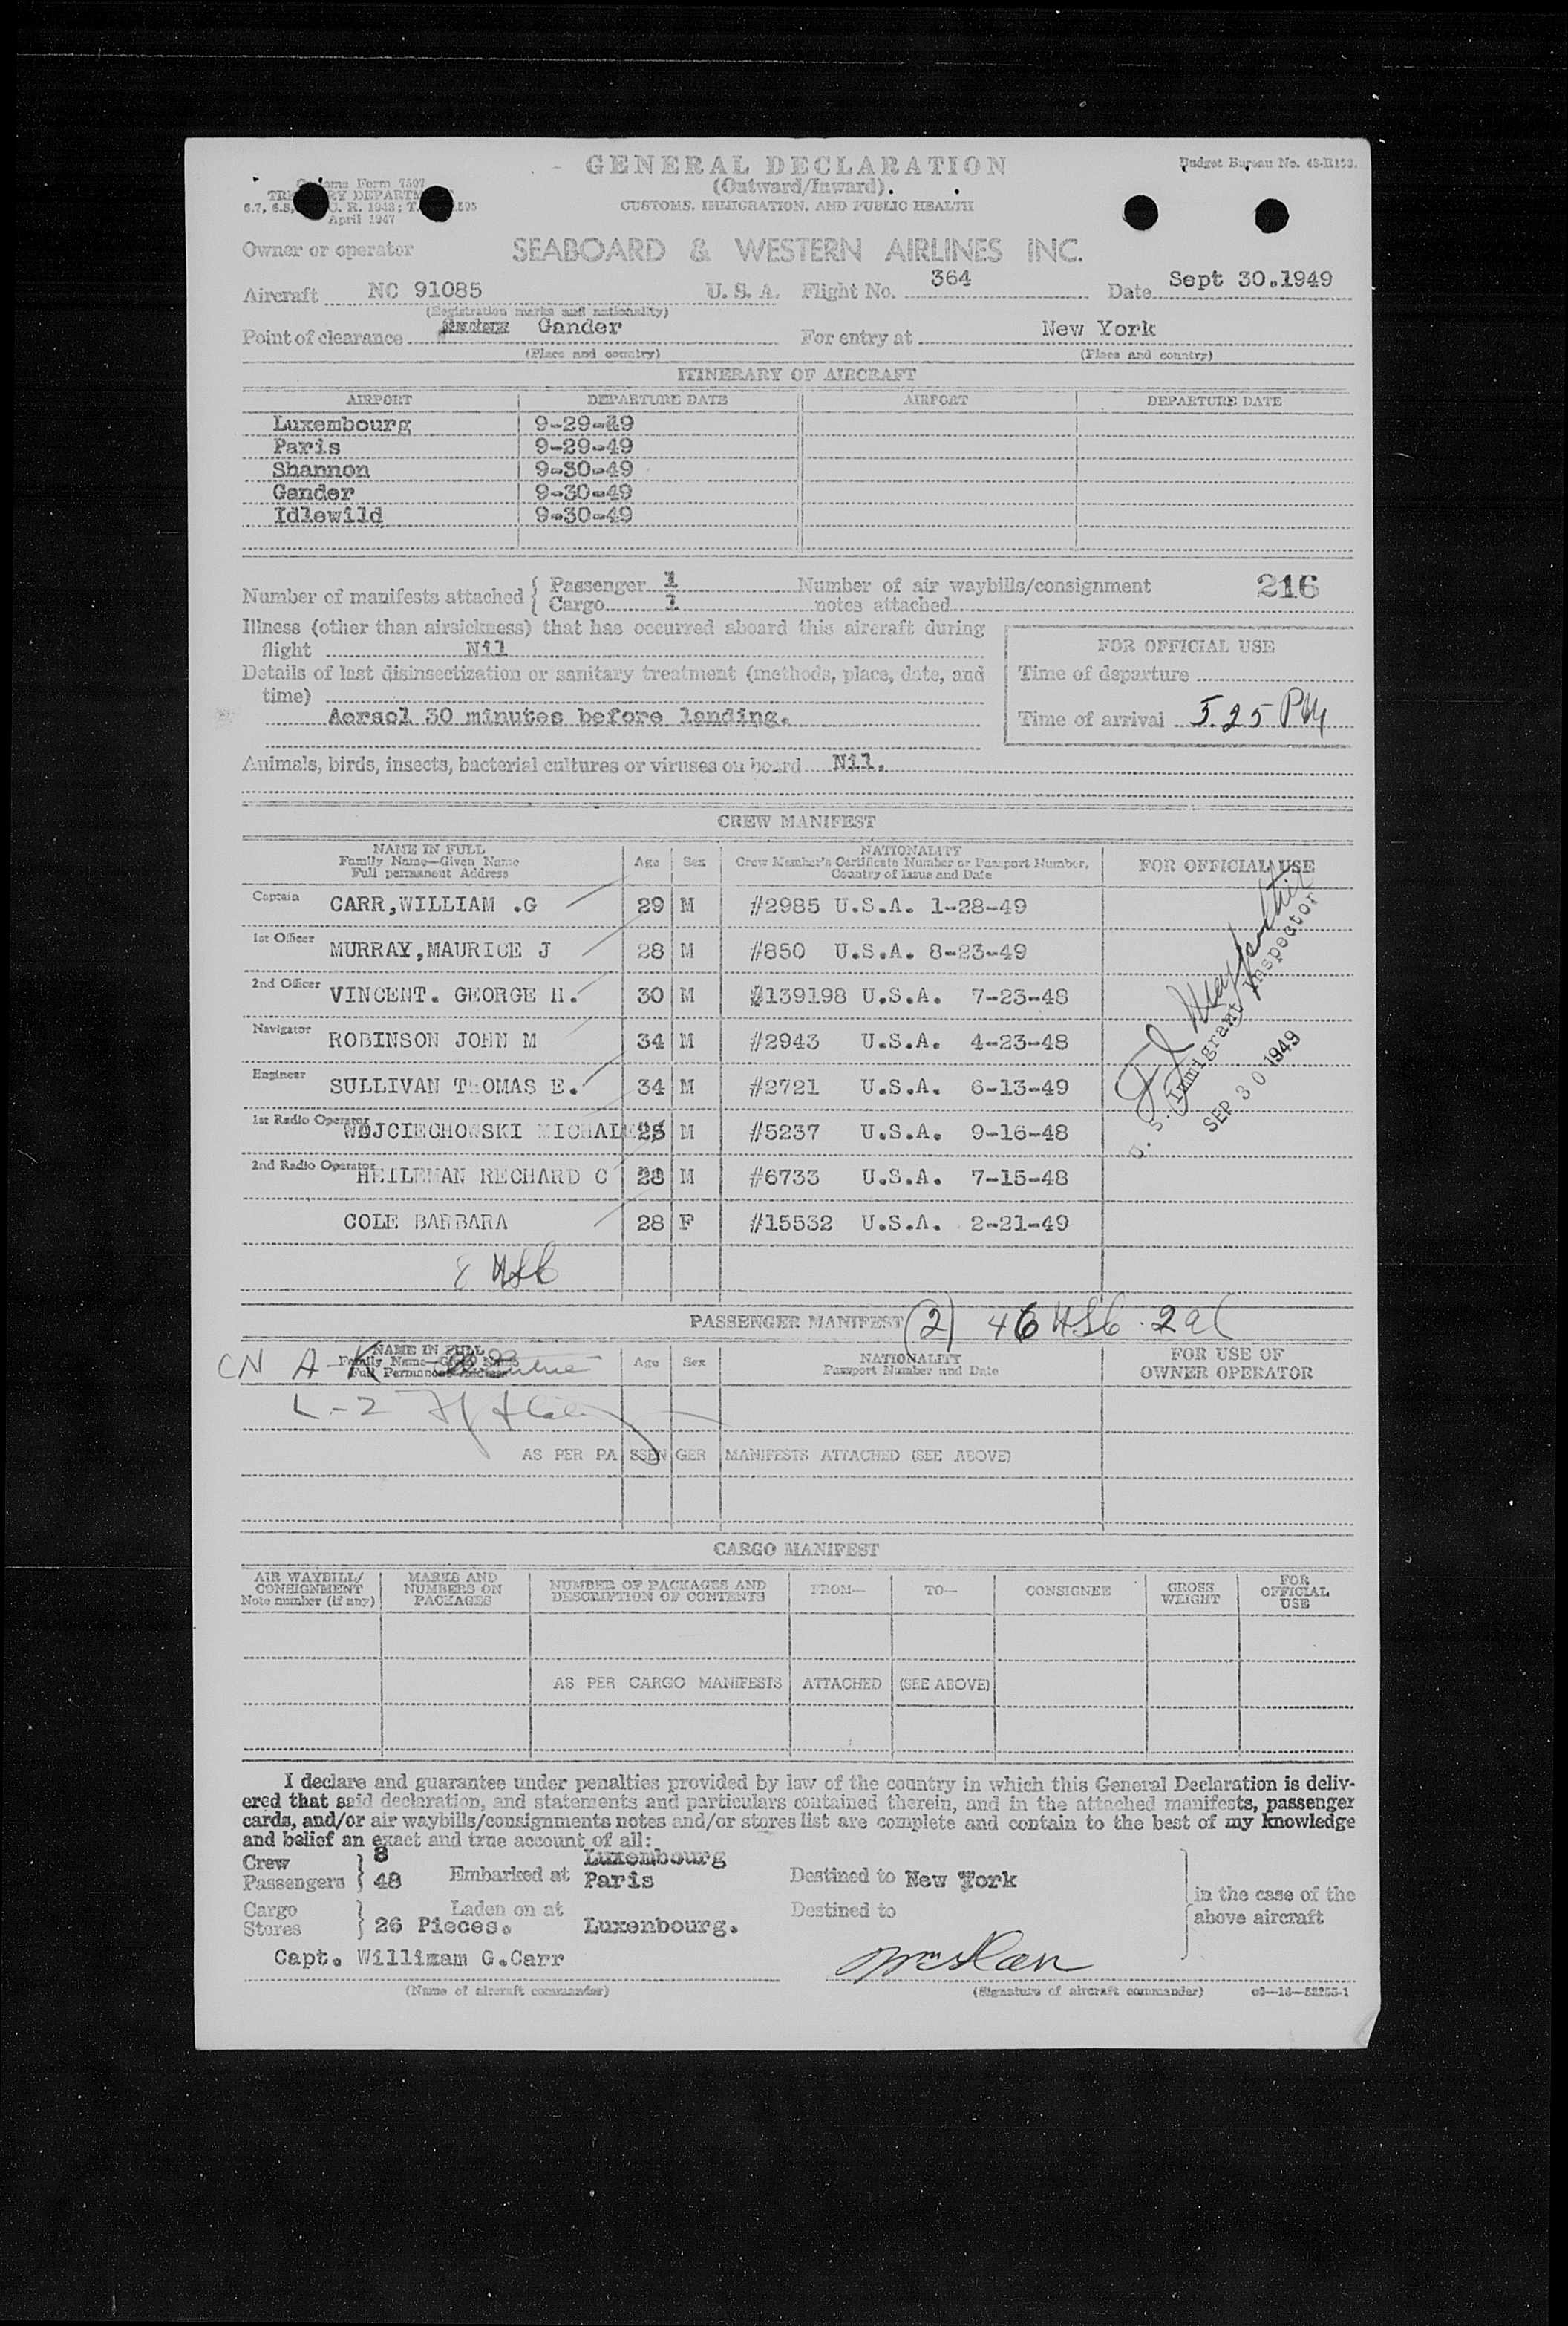 GENERAL DECLARATION
(Outward/Inward).
CUSTOMS, IMMIGRATION, AND PUBLIC HEALTH
Budget Bureau No. 48-R153.
Customs Form 7507
TREASURY DEPARTMENT
April 1947
Owner or operator SEABOARD & WESTERN AIRLINES INC.
Aircraft NC 91085 U. S. A. Flight No. 364 Date Sept 30.1949
(Registration marks and nationality)
Point of clearance Gander For entry at New York
(Place and country) (Place and country)
ITINERARY OF AIRCRAFT
AIRPORT DEPARTURE DATE AIRPORT DEPARTURE DATE
Luxembourg 9-29-49
Paris 9-29-49
Shannon 9-30-49
Gander 9-30-49
Idlewild 9-30-49
Number of manifests attached { Passenger 1 Number of air waybills/consignment 216
Cargo 1 notes attached
Illness (other than airsickness) that has occurred aboard this aircraft during
flight Nil
Details of last disinsectization or sanitary treatment (methods, place, date, and
time)
Aersol 30 minutes before landing.
FOR OFFICIAL USE
Time of departure
Time of arrival 5.25 PM
Animals, birds, insects, bacterial cultures or viruses on board Nil.
CREW MANIFEST
NAME IN FULL
Family Name—Given Name
Full permanent Address
Age Sex
NATIONALITY
Crew Member's Certificate Number or Passport Number,
Country of Issue and Date
FOR OFFICIAL USE
Captain CARR,WILLIAM .G 29 M #2985 U.S.A. 1-28-49
1st Officer MURRAY,MAURICE J 28 M #850 U.S.A. 8-23-49
2nd Officer VINCENT. GEORGE H. 30 M #139198 U.S.A. 7-23-48
Navigator ROBINSON JOHN M 34 M #2943 U.S.A. 4-23-48
Engineer SULLIVAN THOMAS E. 34 M #2721 U.S.A. 6-13-49
1st Radio Operator WOJCIECHOWSKI M #5237 U.S.A. 9-16-48
2nd Radio Operator HEILEMAN RECHARD C 28 M #6733 U.S.A. 7-15-48
COLE BARBARA 28 F #15532 U.S.A. 2-21-49
U. S. Immigrant Inspector
SEP 30 1949
8 USC
PASSENGER MANIFEST (2) 46 USC. 2 al
NAME IN FULL
Family Name—Given Name
Full Permanent Address
Age Sex
NATIONALITY
Passport Number and Date
FOR USE OF
OWNER OPERATOR
CN A-K
L-2
AS PER PASSENGER MANIFESTS ATTACHED (SEE ABOVE)
CARGO MANIFEST
AIR WAYBILL/
CONSIGNMENT
Note number (if any)
MARKS AND
NUMBERS ON
PACKAGES
NUMBER OF PACKAGES AND
DESCRIPTION OF CONTENTS
FROM— TO— CONSIGNEE
GROSS
WEIGHT
FOR
OFFICIAL
USE
AS PER CARGO MANIFESTS ATTACHED (SEE ABOVE)
I declare and guarantee under penalties provided by law of the country in which this General Declaration is deliv-
ered that said declaration, and statements and particulars contained therein, and in the attached manifests, passenger
cards, and/or air waybills/consignments notes and/or stores list are complete and contain to the best of my knowledge
and belief an exact and true account of all:
Crew } 8 Luxembourg
Passengers } 48 Embarked at Paris Destined to New York
Cargo } Laden on at Destined to
Stores } 26 Pieces. Luxenbourg.
in the case of the
above aircraft
Capt. Willimam G.Carr Wm G Carr
(Name of aircraft commander) (Signature of aircraft commander) c9—16—52255-1